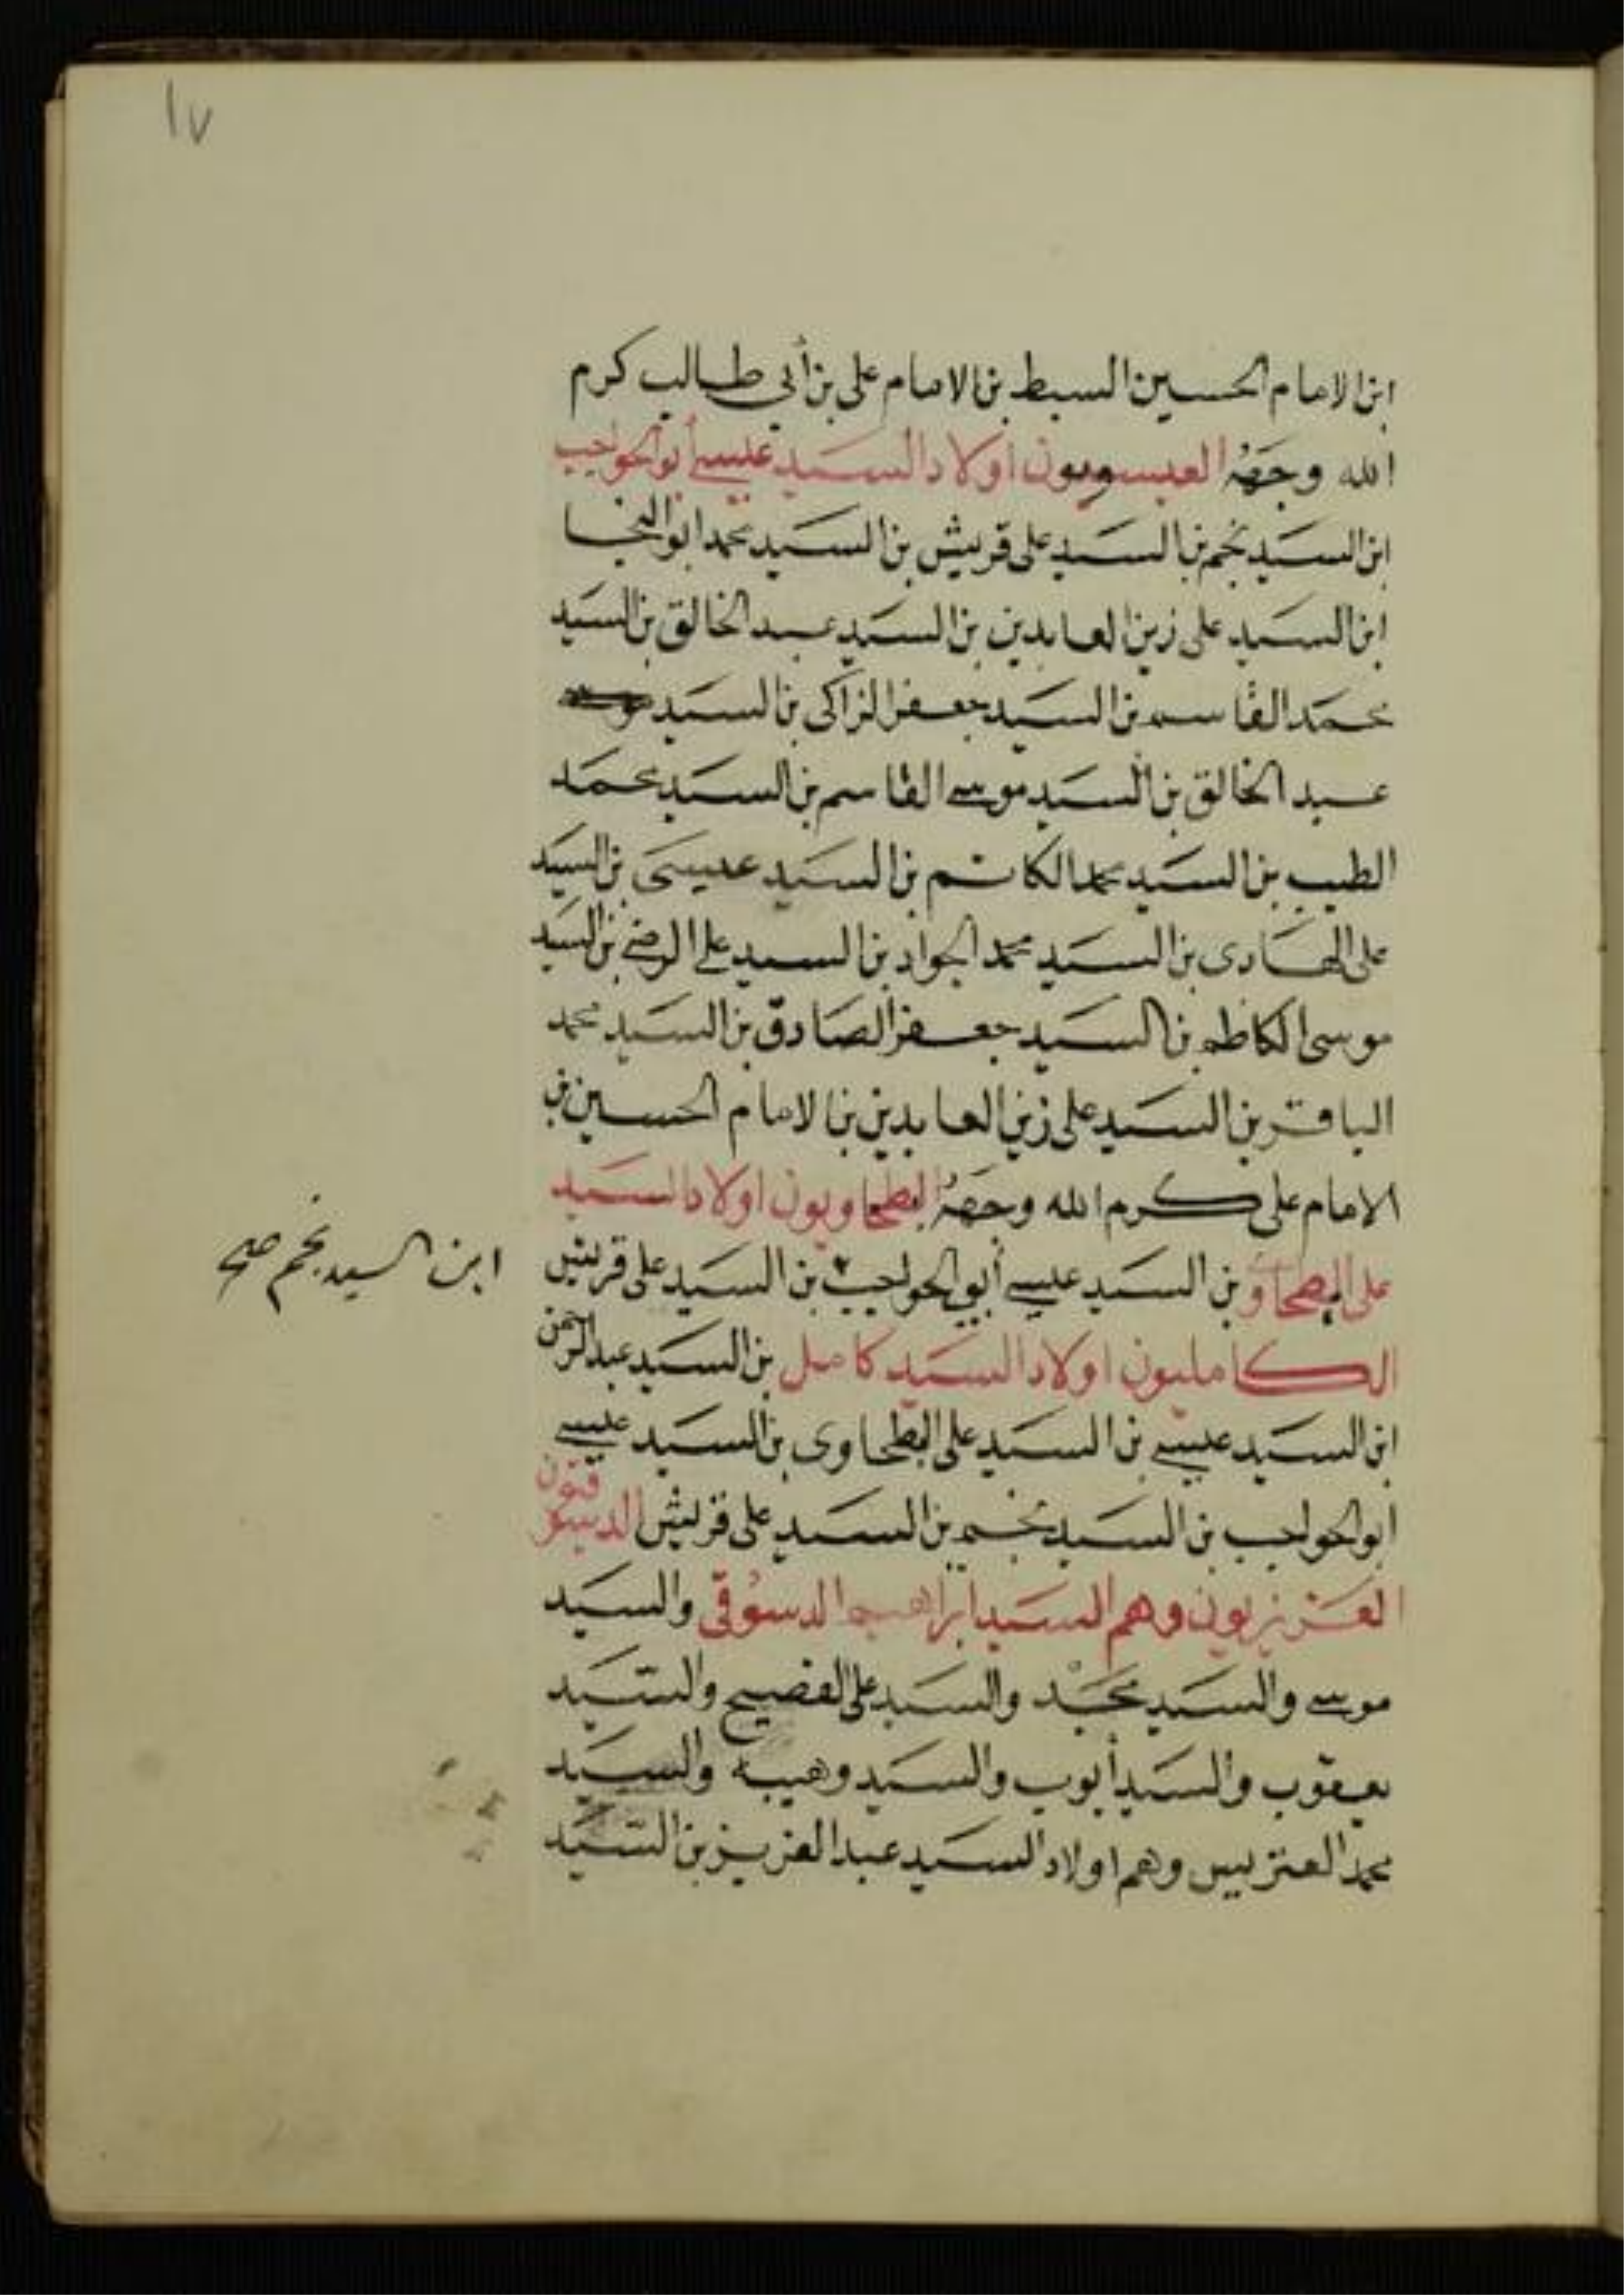 ١٧
ابن الامام الحسين السبط بن الامام على بن أبي طالب كرم
الله وجهه العيسويون اولاد السيد عيسى أبو الحواجب
ابن السيد نجم بن السيد على قريش بن السيد محمد ابو النجا
ابن السيد على زين العابدين بن السيد عبد الخالق بن السيد
محمد القاسم بن السيد جعفر الزاكى بن السيد
عبد الخالق بن السيد موسى القاسم بن السيد محمد
الطيب بن السيد محمد الكاتم بن السيد عيسى بن السيد
على الهادى بن السيد محمد الجواد بن السيد على الرضى بن السيد
موسى الكاظم بن السيد جعفر الصادق بن السيد محمد
الباقر بن السيد على زين العابدين بن الامام الحسين بن
الامام على كرم الله وجهه البطحاويون اولاد السيد
على البطحاوى بن السيد عيسى أبو الحواجب بن السيد على قريش
ابن السيد نجم صح
الكامليون اولاد السيد كامل بن السيد عبد الرحمن
ابن السيد عيسى بن السيد على البطحاوى بن السيد عيسى
ابو الحواجب بن السيد نجم بن السيد على قريش الدسوقيون
العزيزيون وهم السيد ابراهيم الدسوقى والسيد
موسى والسيد محمد والسيد على الفصيح والسيد
يعقوب والسيد أيوب والسيد وهيبه والسيد
محمد العتريس وهم اولاد السيد عبد العزيز بن السيد